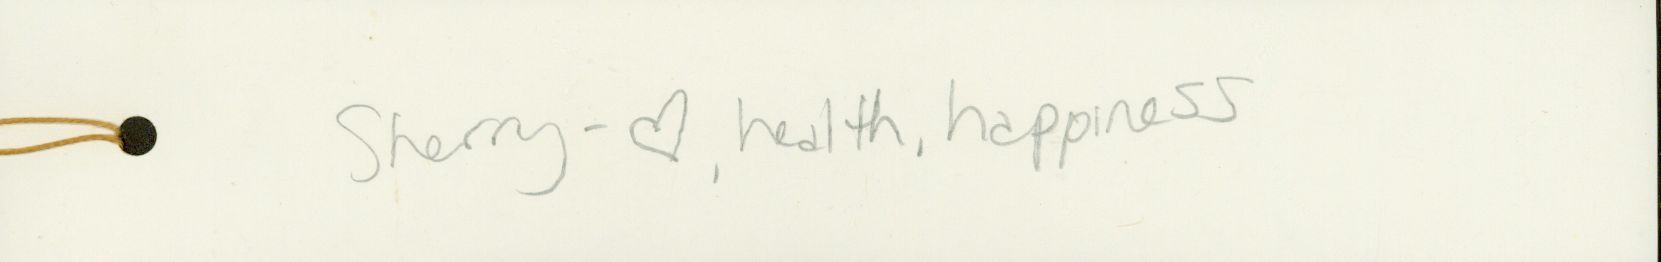 Sherry - ♡, health, happiness